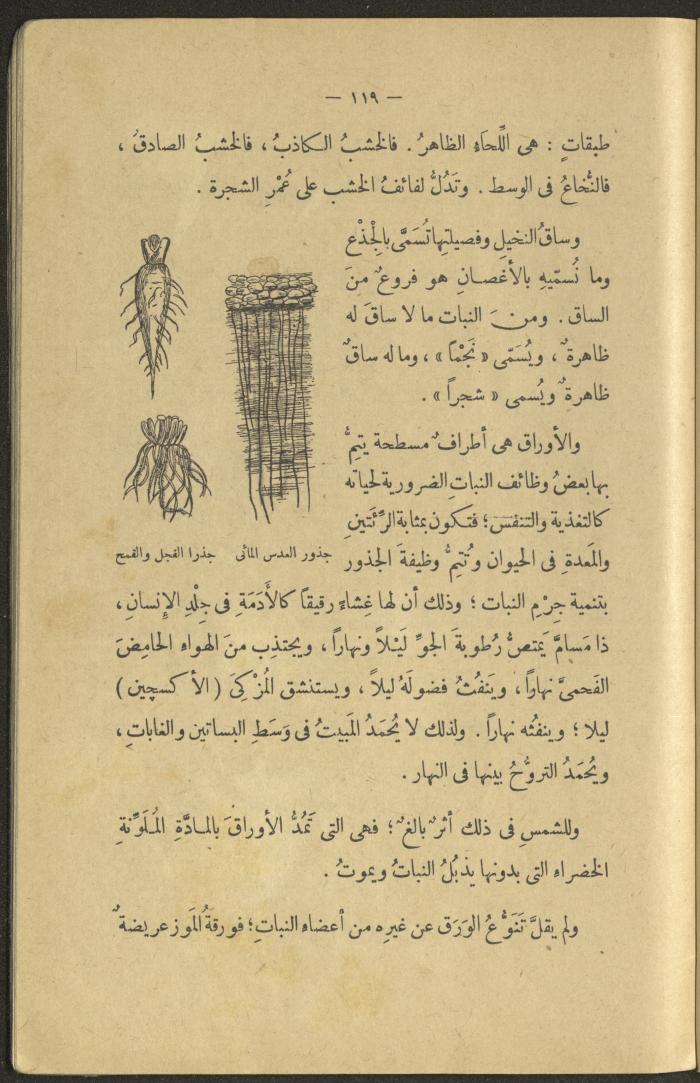 — ١١٩ —
طبقاتٍ : هى اللِّحَاءِ الظاهرُ . فالخشبُ الكاذبُ ، فالخشبُ الصادقُ ،
فالنُّخاعُ فى الوسط . وتَدُلُّ لفائفُ الخشب على عُمْرِ الشجرة .
وساقُ النخيلِ وفصيلتِها تُسَمَّى بالجِذْعِ
وما نُسمّيهِ بالأغصانِ هو فروعٌ منَ
الساق . ومنَ النبات ما لا ساقَ له
ظاهرةٌ ، ويُسَمّى « نَجْمًا » ، وما له ساقٌ
ظاهرةٌ ويُسمى « شجراً » .
والأوراق هى أطرافٌ مسطحة يتِمُّ
بها بعضُ وظائف النباتِ الضرورية لحياته
كالتغذية والتنفسِ ؛ فتكون بمثابة الرِّئَتَينِ
والمَعدةِ فى الحيوان وتُتِمُّ وظيفةَ الجذور
جذور العدس المائى
جذرا الفجل والقمح
بتنمية جِرْمِ النبات ؛ وذلك أن لها غِشاءً رقيقاً كالأَدَمَةِ فى جِلْدِ الإنسانِ ،
ذا مَسامَّ يَمتصُّ رُطوبةَ الجوِّ لَيْلاً ونهاراً ، ويجتذِب منَ الهواءِ الحامِضَ
الفَحمىَّ نهاراً ، ويَنفُثُ فضولَهُ ليلاً ، ويستنشق المُزْكِىَ ( الأكسچين )
ليلا ؛ وينفثُه نهاراً . ولذلك لا يُحمَدُ المَبيتُ فى وَسَطِ البساتين والغاباتِ ،
ويُحمَدُ التروُّحُ بينها فى النهار .
وللشمسِ فى ذلك أثرٌ بالغٌ ؛ فهى التى تَمُدُّ الأوراقَ بالمادَّةِ المُلَوِّنةِ
الخضراءِ التى بدونها يذبُلُ النباتُ ويموتُ .
ولم يقلَّ تَنَوُّعُ الوَرَق عن غيرِه من أعضاء النباتِ ؛ فورقةُ المَوز عريضةٌ